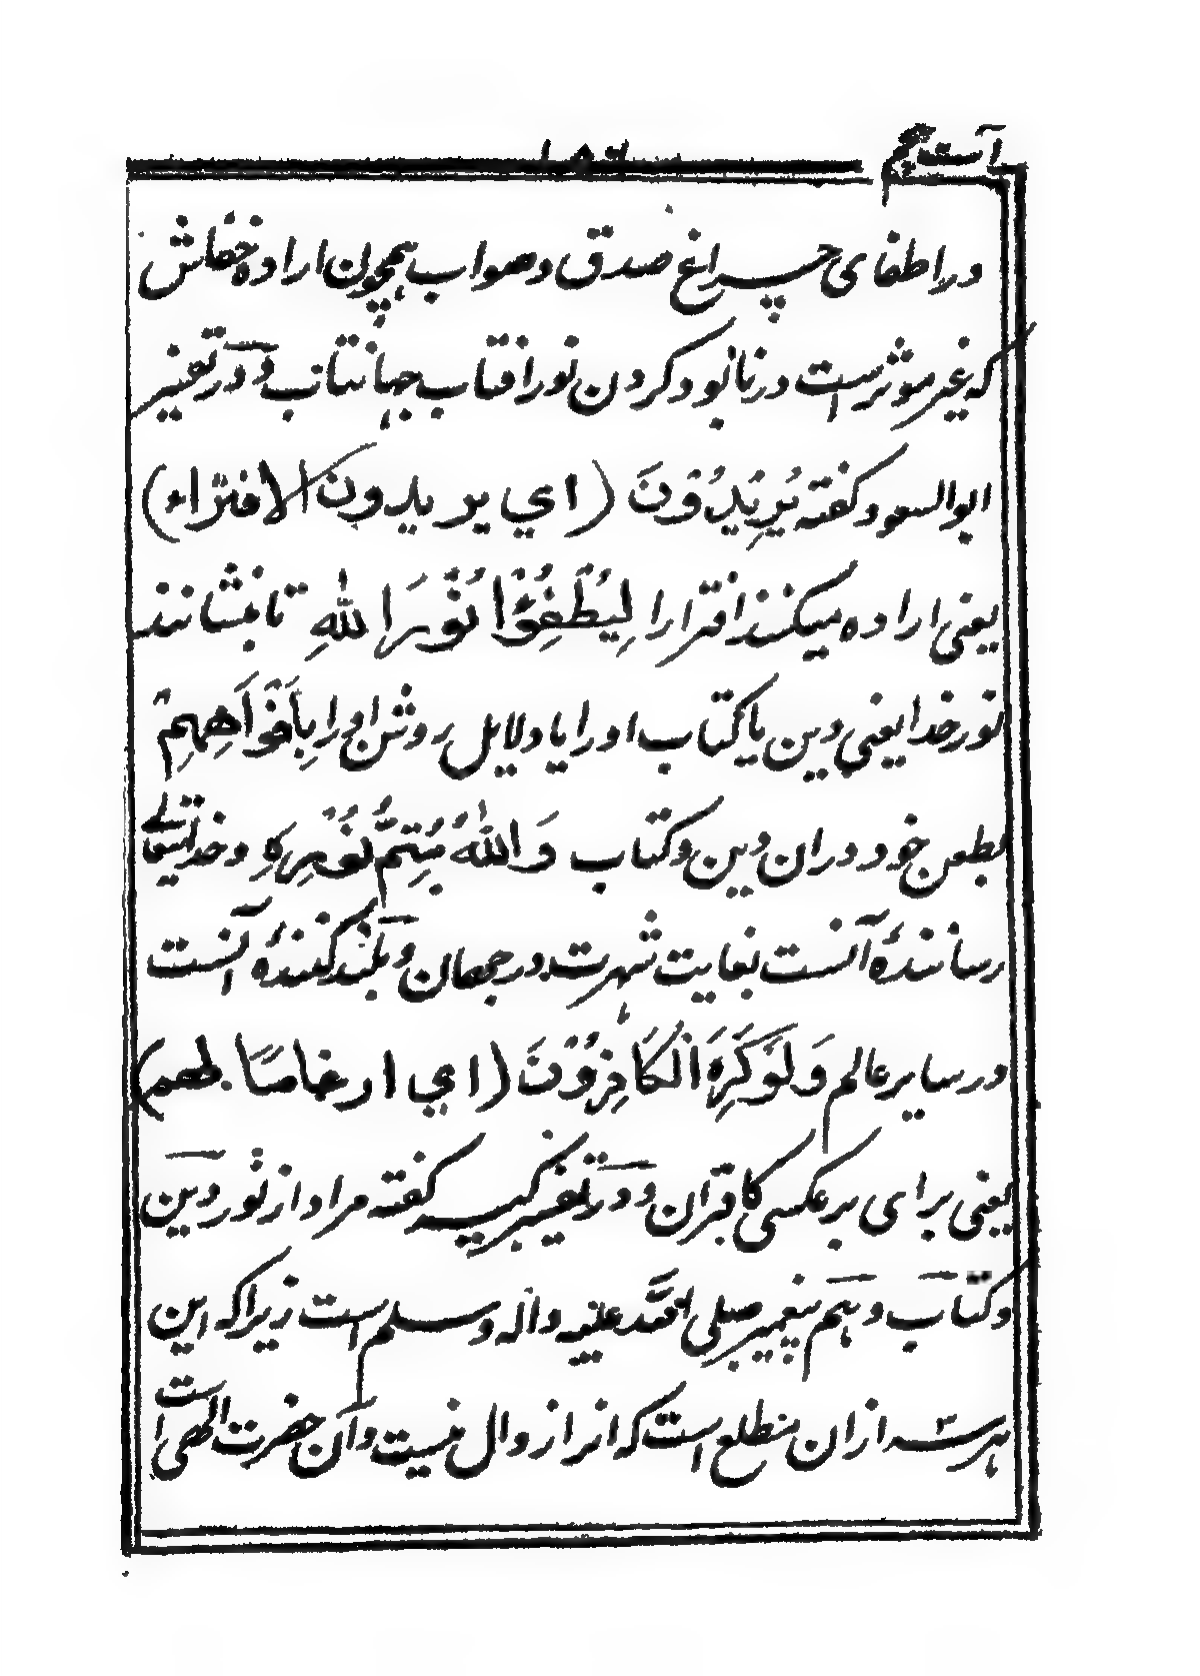 آیت پنجم
۱۵۶
در اطفای چراغ صدق و صواب همچون اراده خفاش
که غیر موثر است در نابود کردن نور افتاب جهانتاب و در تفسیر
ابو السعود گفته یُرِیْدُوْنَ (ای یریدون الافتراء)
یعنی اراده میکنند افترا را لِیُطْفِئُوْا نُوْرَ اللهِ تا بنشانند
نور خدا یعنی دین یا کتاب او را یا دلایل روشن او را بِاَفْوَاهِهِمْ
بطعن خود در ان دین و کتاب وَاللهُ مُتِمُّ نُوْرِهٖ و خدایتعالے
رسانندهٔ آنست بغایت شهرت در جهان و بلند کنندهٔ آنست
در سایر عالم وَلَوْ کَرِهَ الْکَافِرُوْنَ (ای ارغاما لهم)
یعنی برای بر عکسی کافران و در تفسیر کبیر گفته مراد از نور دین
و کتاب و هم پیغمبر صلی الله علیه و آله و سلم است زیرا که این
هر سه ازان منطلع است که انرا زوال نیست و آن حضرت الهی است